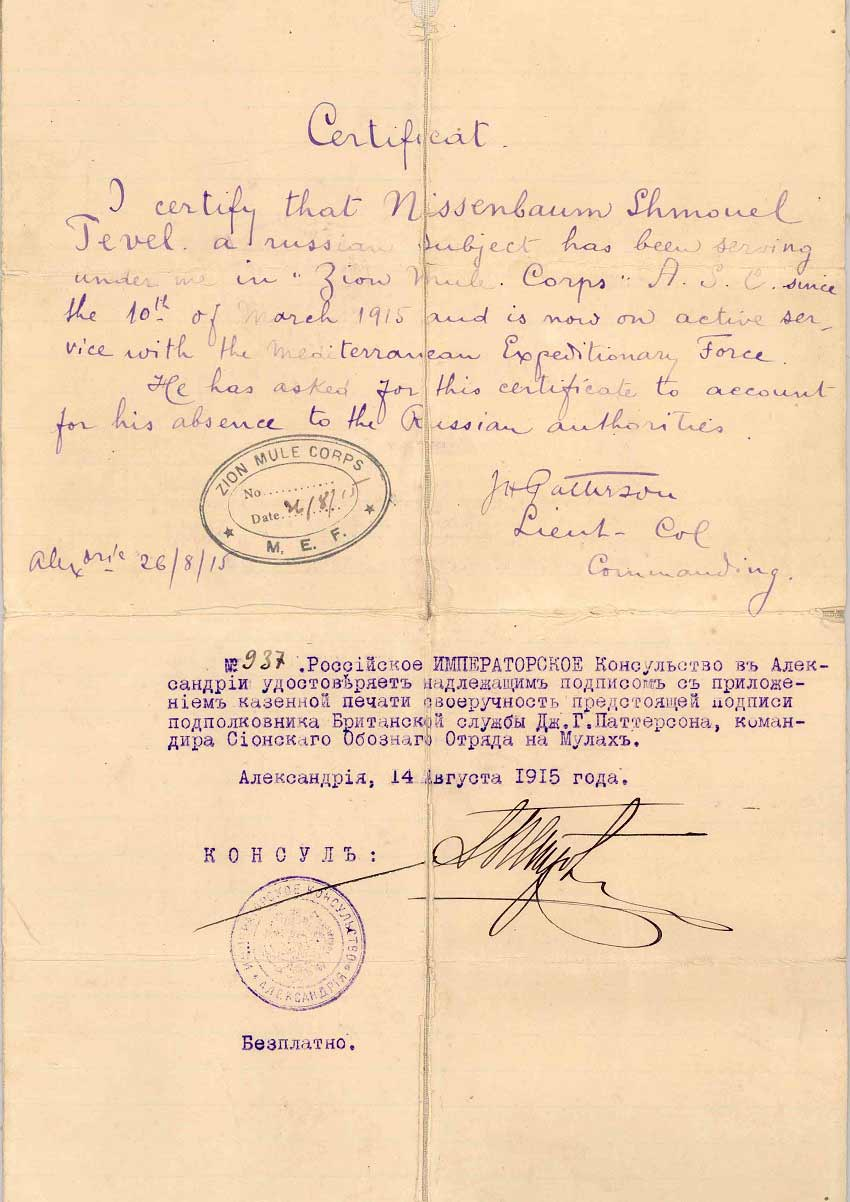 Certificat.
I certify that Nissenbaum Shmouel
Tevel. a russian subject has been serving
under me in "Zion Mule. Corps" A. S. C. since
the 10th of March 1915 and is now on active ser-
vice with the Mediterranean Expeditionary Force.
He has asked for this certificate to account
for his absence to the Russian authorities.
ZION MULE CORPS
No............
Date 26/8/15
M. E. F.
JHPatterson
Lieut- Col
Commanding.
Alexdrie 26/8/15
№ 937 .Россійское ИМПЕРАТОРСКОЕ Консульство въ Алек-
сандріи удостовѣряетъ надлежащимъ подписомъ съ приложе-
ніемъ казенной печати своеручность предстоящей подписи
подполковника Британской службы Дж.Г.Паттерсона, коман-
дира Сіонскаго Обознаго Отряда на Мулахъ.
Александрія, 14 Августа 1915 года.
КОНСУЛЪ:
ИМПЕРАТОРСКОЕ КОНСУЛЬСТВО
АЛЕКСАНДРІЯ
Безплатно.